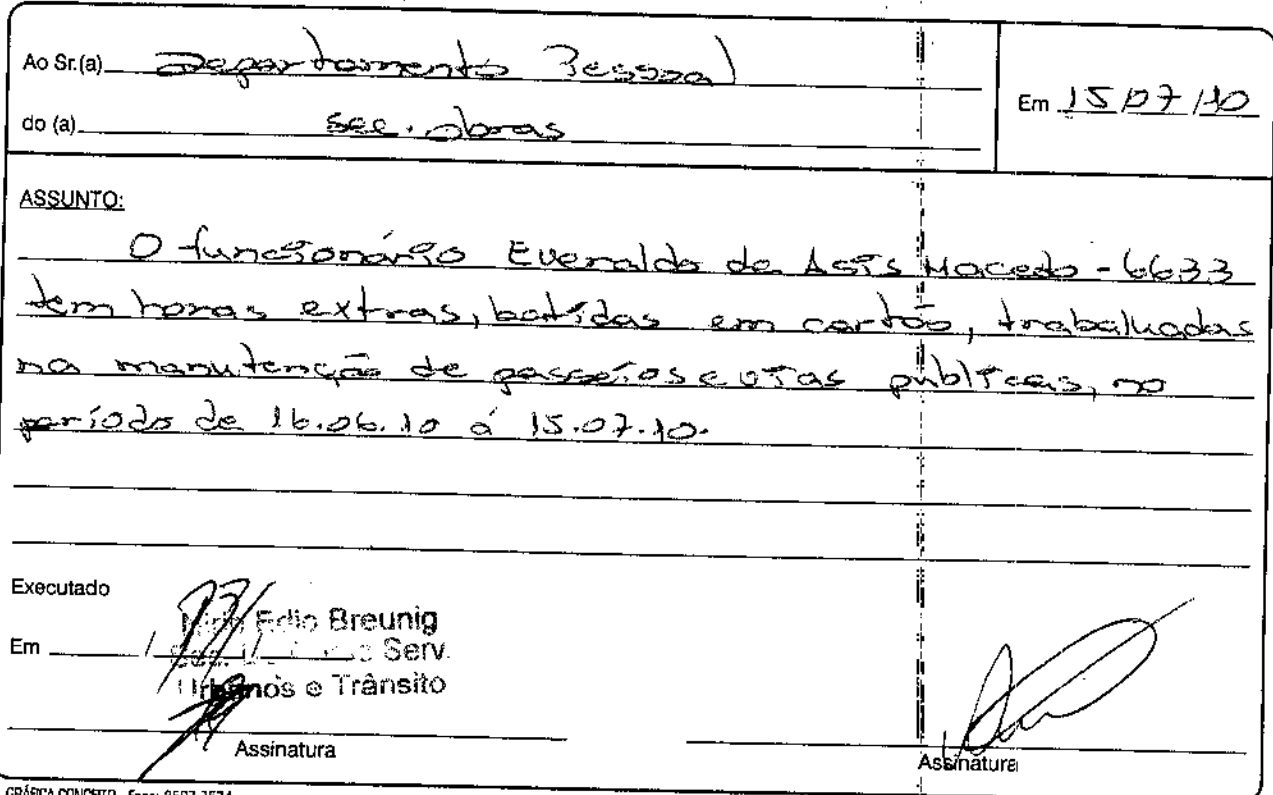 Ao Sr.(a) Departamento Pessoal
do (a) sec. obras
Em 15/07/10
ASSUNTO:
O funcionário Everaldo de Assis Macedo - 6633
tem horas extras, batidas em cartão, trabalhadas
na manutenção de passeios e vias públicas, no
período de 16.06.10 á 15.07.10.
Executado
Em / /
Edio Breunig
Serv.
Urbanos e Trânsito
Assinatura
Assinatura
GRÁFICA CONCEITO